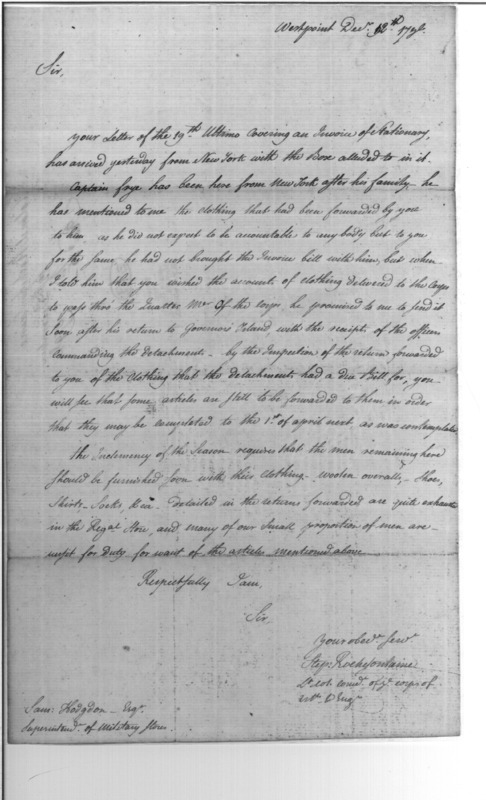 Westpoint Decr. 12th 1796.
Sir,
your Letter of the 19th Ultimo Covering an Invoice of Stationary
has arrived yesterday from New York with the Box alluded to in it.
Captain Frye has been here from New York after his family he
has mentioned to me the clothing that had been forwarded by you
to him as he did not expect to be accountable to any body but to you
for the same he had not brought the Invoice bill with him, but when
I told him that you wished the accounts of clothing delivered to the Corps
to pass thro' the Quarter Mr. Of the corps, he promised to me to send it
Soon after his return to Governors Island with the receipts of the officer
Commanding the detachment - by the Inspection of the return forwarded
to you of the Clothing that the detachments had a due Bill for, you
will see that some articles are still to be forwarded to them in order
that they may be compleated to the 1st of april next as was contemplated
the Inclemency of the Season requires that the men remaining here
Should be furnished soon with their Clothing - woolen overalls, Shoes,
Shirts - Socks, detailed in the returns forwarded are quite exhausted
in the Regal Store, and many of our Small proportion of men are
unfit for Duty for want of the articles mentioned above
Respectfully I am,
Sir,
your obedt. Servt.
Step. Rochefontaine
Lt. col. comdt. of ye corps of
Artts. & Engrs
Sam: Hodgdon - Esqr.
Superintendt. of Military Stores.